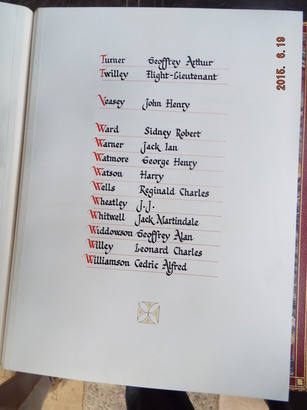 Turner Geoffrey Arthur
Twilley Flight-Lieutenant
Veasey John Henry
Ward Sidney Robert
Warner Jack Ian
Watmore George Henry
Watson Harry
Wells Reginald Charles
Wheatley J.J.
Whitwell Jack Martindale
Widdowson Geoffrey Alan
Willey Leonard Charles
Williamson Cedric Alfred
2015. 6. 19